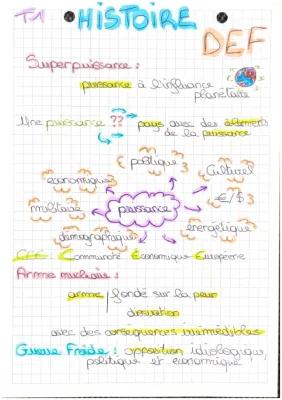 T1 HISTOIRE
DEF
Superpuissance :
puissance à l'influence
planétaire
Une puissance ?? pays avec des éléments
de la puissance
politique
culturel
économique
€/$
militaire
puissance
énergétique
démographique
CEE : Communauté Economique Européenne
Arme nucléaire :
arme fondé sur la peur
avec des conséquences irrémédibles
Guerre Froide : opposition idiologique,
politique et économique